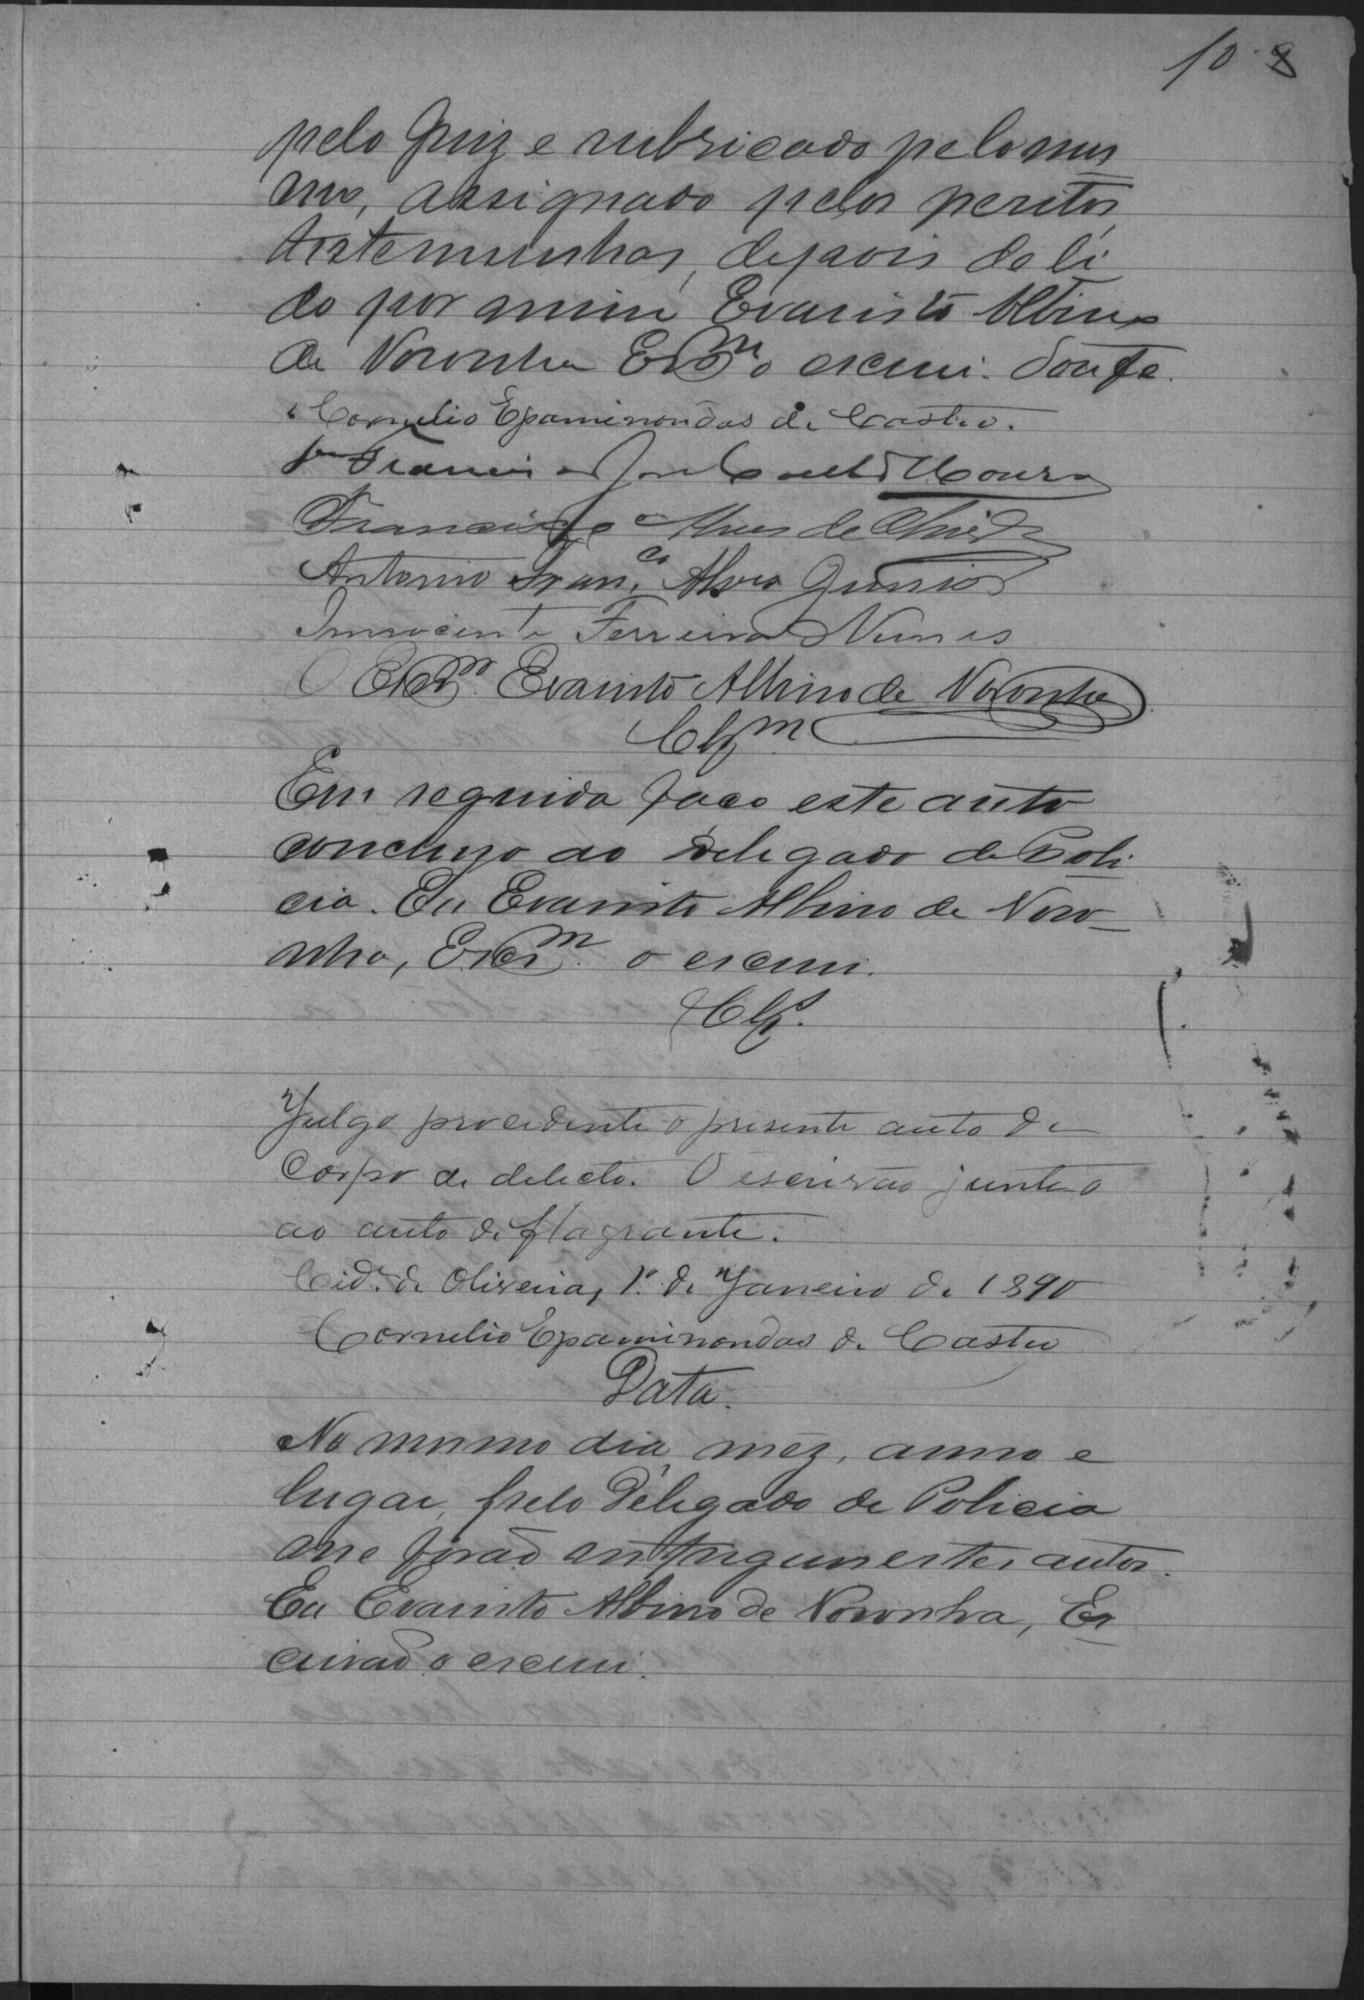 10 8
pelo Juiz e rubricado pelo mes
mo, assignado pelos peritos,
testemunhas, depois de li
do por mim Evaristo Albino
de Noronha Escrm o escrevi. Dou fé.
Cornelio Epaminondas de Castro.
Francisco José Coelho Moura
Francisco Alves de
Antonio Franco Alves Junior
Innocente Ferreira Nunes
O Escrm. Evaristo Albino de Noronha
Clzm.
Em seguida faco este auto
concluzo ao Delegado de Poli
cia. Eu Evaristo Albino de Noro-
nha, Escrm. o escrevi.
Clz.
Julgo procedente o presente auto de
Corpo de delicto. O escrivão junte o
ao auto de flagrante.
Cide. de Oliveira, 1º. de Janeiro de 1890
Cornelio Epaminondas de Castro
Data.
No mesmo dia, mez, anno e
lugar, pelo Delegado de Policia
me forão entregues estes autos.
Eu Evaristo Albino de Noronha, Es
crivão o escrevi.